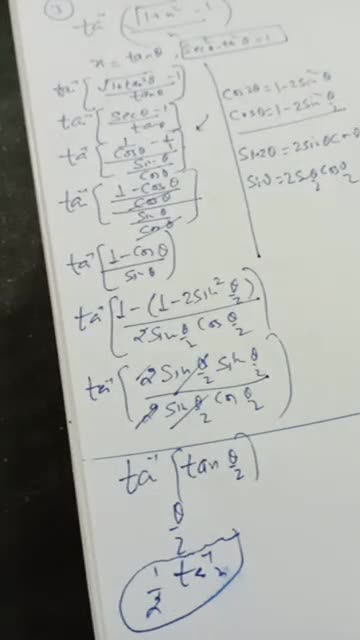 ③ ta⁻¹ (√(1+x²) - 1 / x)
x = tanθ, sec²θ - tan²θ = 1
ta⁻¹ [√(1+tan²θ) - 1 / tanθ]
ta⁻¹ [secθ - 1 / tanθ]
ta⁻¹ [1/cosθ - 1/1 / sinθ/cosθ]
ta⁻¹ [1-cosθ/cosθ / sinθ/cosθ]
ta⁻¹ (1-cosθ / sinθ)
ta⁻¹ (1-(1-2sin² θ/2) / 2sin θ/2 cos θ/2)
ta⁻¹ (2 sin θ/2 sin θ/2 / 2 sin θ/2 cos θ/2)
ta⁻¹ [tan θ/2)
θ/2
1/2 ta⁻¹ x
cos2θ = 1-2sin²θ
cosθ = 1-2sin² θ/2
sin2θ = 2sinθcosθ
sinθ = 2sin θ/2 cos θ/2